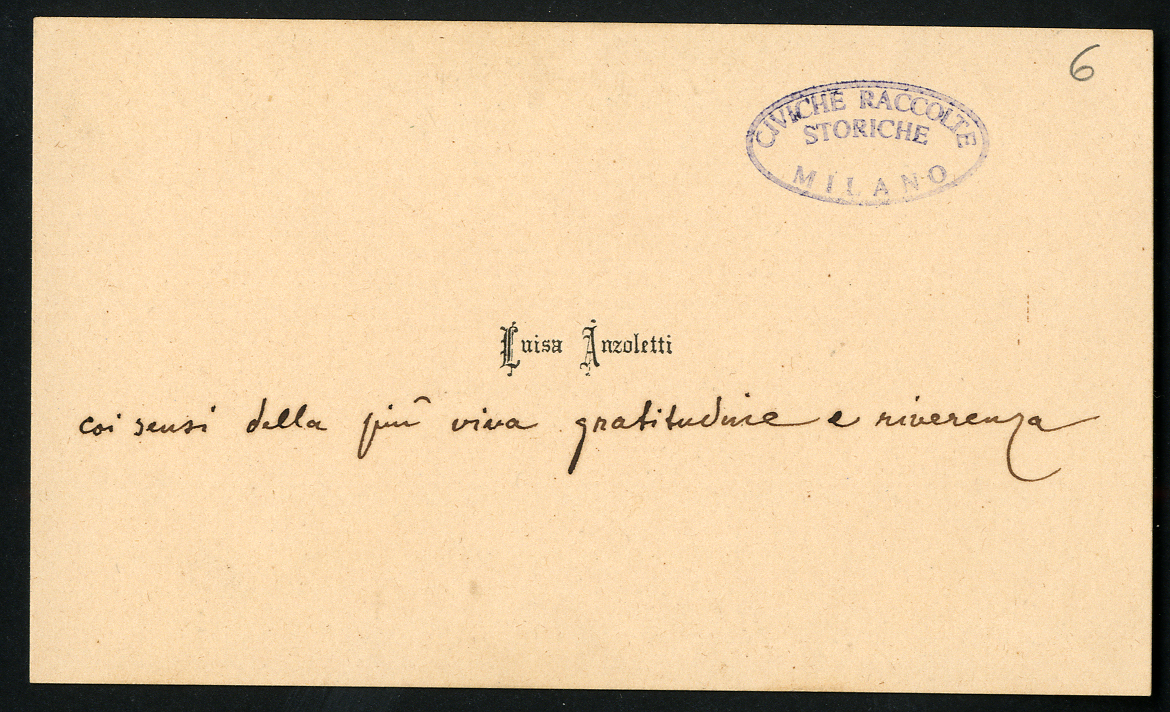 6
CIVICHE RACCOLTE
STORICHE
MILANO
Luisa Anzoletti
coi sensi della più viva gratitudine e riverenza